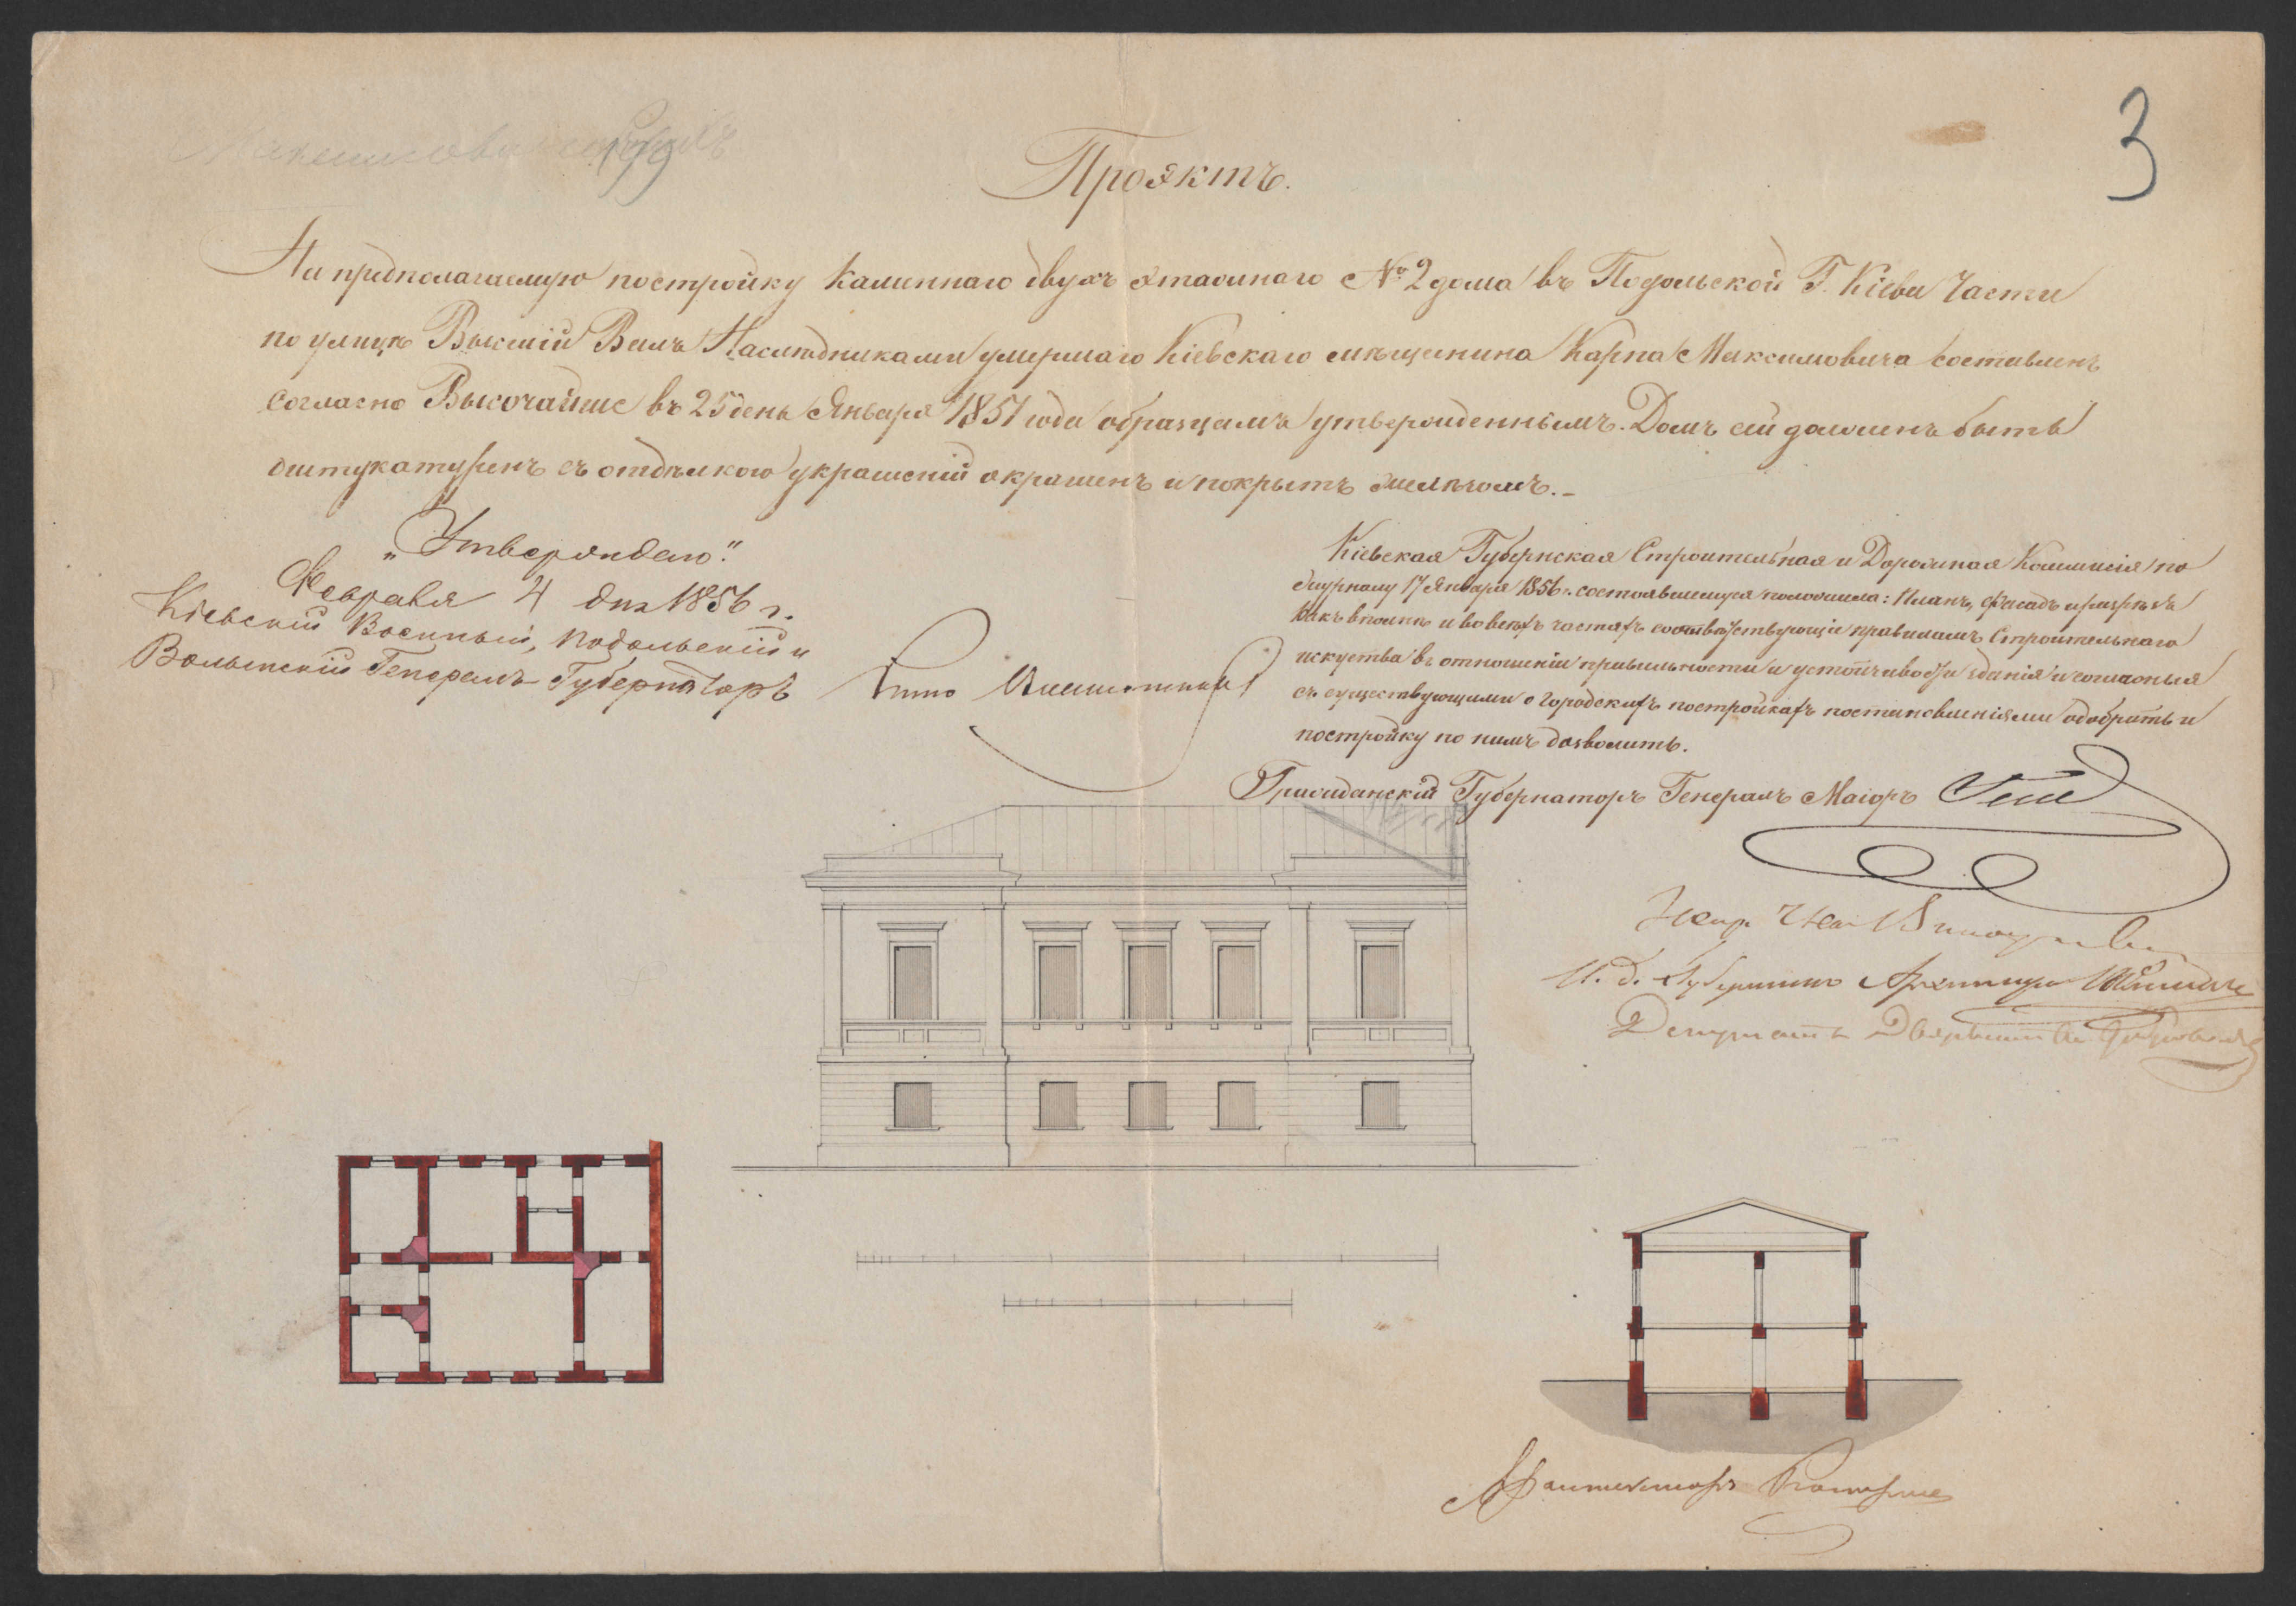 3
Проэктъ.
На предполагаемую постройку каменнаго двухъ этажнаго № 2 дома въ Подольской Г. Кіева Части
по улицѣ Высшій Валъ Наслѣдниками умершаго Кіевскаго мѣщанина Карпа Максимовича составленъ
согласно Высочайше въ 25 день Января 1851 года образцамъ утвержденнымъ. Домъ сей долженъ быть
оштукатуренъ съ отдѣлкою украшеній окрашенъ и покрытъ желѣзомъ.
„Утверждаю".
Февраля 4 дня 1856 г.
Кіевскій Военный, Подольскій и
Волынскій Генералъ-Губернаторъ
Кіевская Губернская Строительная и Дорожная Коммисія по
журналу 17 Января 1856 г. состоявшемуся положила: Планъ, фасадъ и разрѣзъ
какъ вполнѣ и во всѣхъ частяхъ соотвѣтствующіе правиламъ Строительнаго
искуства въ отношеніи правильности и устойчивости зданія и согласныя
съ существующими о городскихъ постройкахъ постановленіями одобрить и
постройку по нимъ дозволить.
Гражданскій Губернаторъ Генералъ Маіоръ Гессе
И. д. Губернскаго Архитектора
Депутатъ Дворянства
Архитекторъ